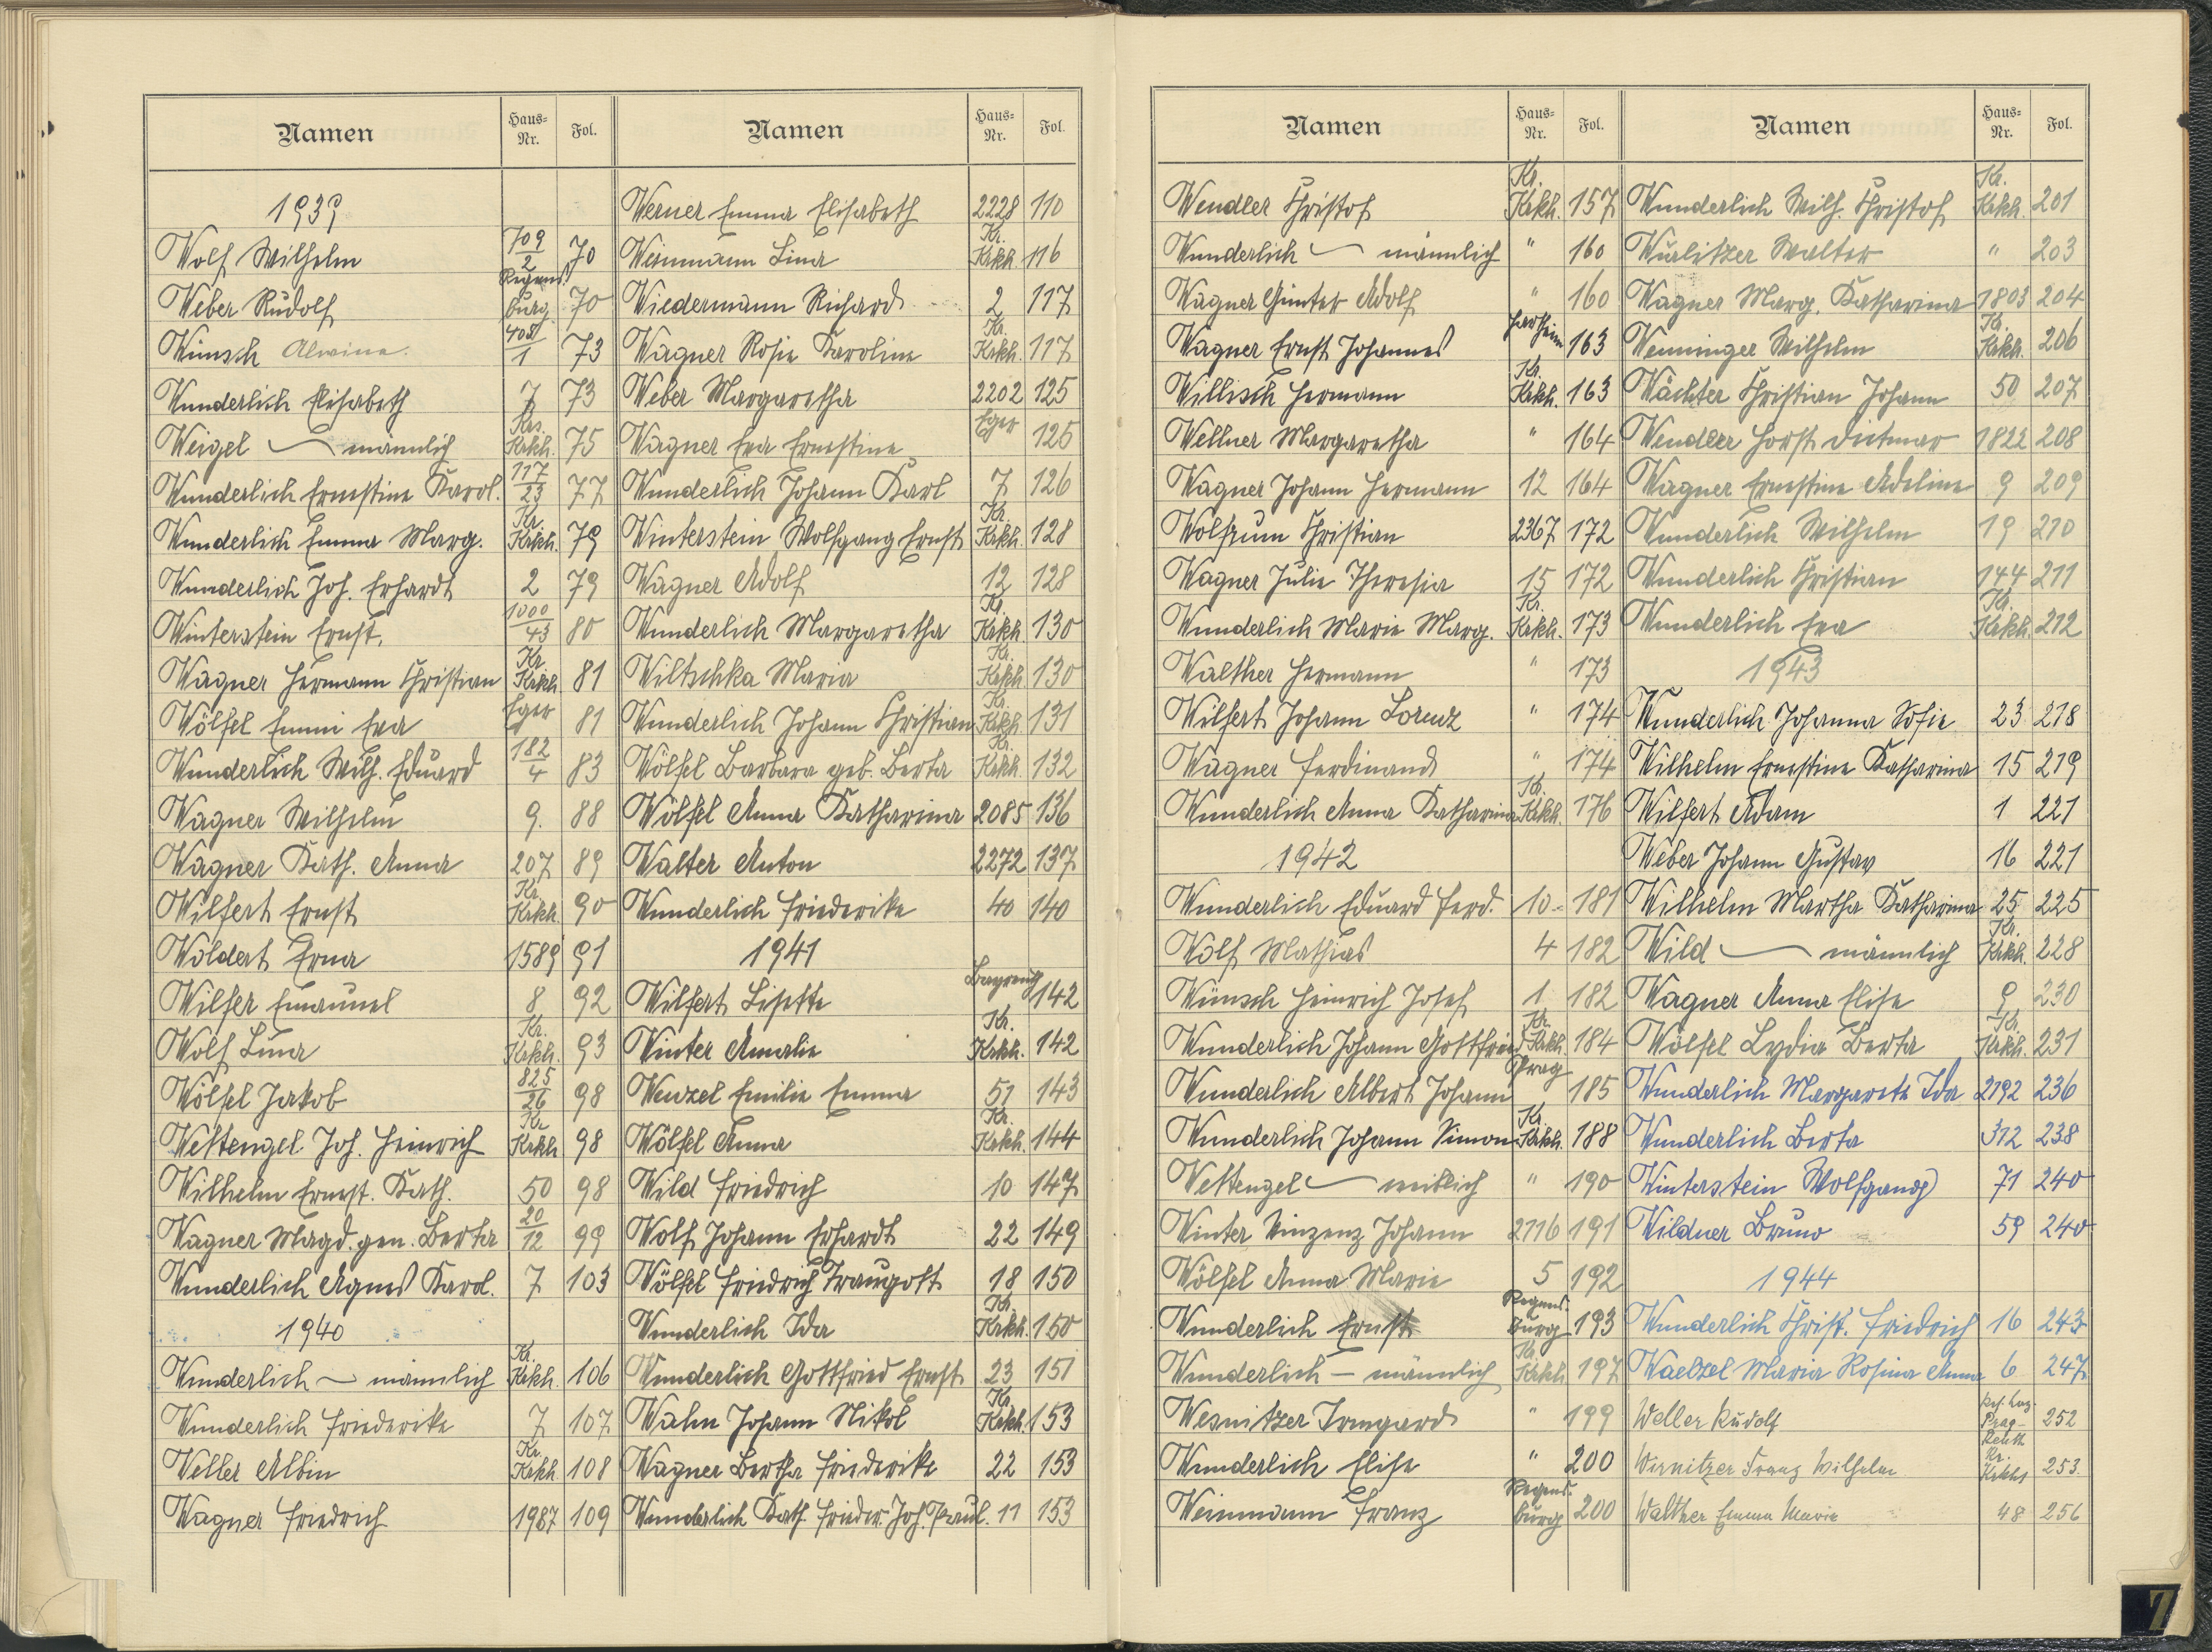 Namen Haus-Nr. Fol.
1939
Wolf Wilhelm 709/2 70
Weber Rudolf Regensburg 70
Wunsch Alwine. 408/1 73
Wunderlich Elisabeth 7 73
Weigel — männlich Krs. Krkh. 75
Wunderlich Ernestine Karol. 117/23 77
Wunderlich Emma Marg. Kr. Krkh. 79
Wunderlich Joh. Erhardt 2 79
Winterstein Ernst. 1000/43 80
Wagner Hermann Christian Kr. Krkh. 81
Wölfel Emmi Eva Eger 81
Wunderlich Wilh. Eduard 182/4 83
Wagner Wilhelm 9. 88
Wagner Kath. Anna 207 89
Wilfert Ernst Kr. Krkh. 90
Woldert Erna 1589 91
Wilfer Emanuel 8 92
Wolf Lina Kr. Krkh. 93
Wölfel Jakob 825/26 98
Wettengel Joh. Heinrich Kr. Krkh 98
Wilhelm Ernest. Kath. 50 98
Wagner Magd. gen. Berta 20/12 99
Wunderlich Agnes Karol. 7 103
1940
Wunderlich — männlich Kr. Krkh. 106
Wunderlich Friederike 7 107
Weller Albin Kr. Krkh. 108
Wagner Friedrich 1987 109
Namen Haus-Nr. Fol.
Werner Emma Elisabeth 2228 110
Weinmann Lina Kr. Krkh. 116
Wiedermann Richard 2 117
Wagner Rosie Karoline Kr. Krkh. 117
Weber Margaretha 2202 125
Wagner Eva Ernestine Eger 125
Wunderlich Johann Karl 7 126
Winterstein Wolfgang Ernst Kr. Krkh. 128
Wagner Adolf 12 128
Wunderlich Margaretha Kr. Krkh 130
Wiltschka Maria Kr. Krkh. 130
Wunderlich Johann Christian Kr. Krkh. 131
Wölfel Barbara geb. Berta Kr. Krkh. 132
Wölfel Anna Katharina 2085 136
Walter Anton 2272 137
Wunderlich Friederike 40 140
1941
Wilfert Lisette Bayreuth 142
Winter Amalie Kr. Krkh. 142
Wenzel Emilie Emma 51 143
Wölfel Anna Kr. Krkh. 144
Wild Friedrich 10 147
Wolf Johann Erhardt 22 149
Wölfel Friedrich Traugott 18 150
Wunderlich Ida Kr. Krkh. 150
Wunderlich Gottfried Ernst 23 151
Wahn Johann Nikol Kr. Krkh. 153
Wagner Bertha Friederike 22 153
Wunderlich Kath. Frieder. Joh. Paul. 11 153
Namen Haus-Nr. Fol.
Wendler Christof Kr. Krkh. 157
Wunderlich — männlich " 160
Wagner Günter Adolf " 160
Wagner Ernst Johannes 163
Willisch Hermann Kr. Krkh. 163
Wellner Margaretha " 164
Wagner Johann Hermann 12 164
Wolfrum Christian 2367 172
Wagner Julie Theresia 15 172
Wunderlich Marie Marg. Kr. Krkh. 173
Walther Hermann " 173
Wilfert Johann Lorenz " 174
Wagner Ferdinand " 174
Wunderlich Anna Katharina Kr. Krkh. 176
1942
Wunderlich Eduard Ferd. 10 181
Wolf Mathias 4 182
Wünsch Heinrich Josef 1 182
Wunderlich Johann Gottfried Kr. Krkh. 184
Wunderlich Albert Johann Prag 185
Wunderlich Johann Simon Kr. Krkh. 188
Wettengel — weiblich " 190
Winter Vinzenz Johann 2116 191
Wölfel Anna Marie 5 192
Wunderlich Ernst Regensburg 193
Wunderlich — männlich Kr. Krkh 197
Wesnitzer Irmgard " 199
Wunderlich Elise " 200
Weinmann Franz Regensburg 200
Namen Haus-Nr. Fol.
Wunderlich Wilh. Christof Kr. Krkh. 201
Wurlitzer Walter " 203
Wagner Marg. Katharina 1803 204
Wenninger Wilhelm Kr. Krkh. 206
Wächter Christian Johann 50 207
Wendler Horst Dietmar 1822 208
Wagner Ernestine Adeline 9 209
Wunderlich Wilhelm 19 210
Wunderlich Christian 144 211
Wunderlich Eva Kr. Krkh. 212
1943
Wunderlich Johanna Sofie 23 218
Wilhelm Ernestine Katharina 15 219
Wilfert Adam 1 221
Weber Johann Gustav 16 221
Wilhelm Martha Katharina 25 225
Wild — männlich Kr. Krkh. 228
Wagner Anna Elise 9 230
Wölfel Lydia Berta Kr. Krkh. 231
Wunderlich Margarete Ida 2192 236
Wunderlich Berta 312 238
Winterstein Wolfgang 71 240
Wildner Bruno 59 240
1944
Wunderlich Christ. Friedrich 16 243
Waelzel Maria Rosina Anna 6 247
Weller Rudolf Prag- 252
Wirnitzer Franz Wilhelm Kr. Krkhs 253.
Walther Emma Marie 48 256
7